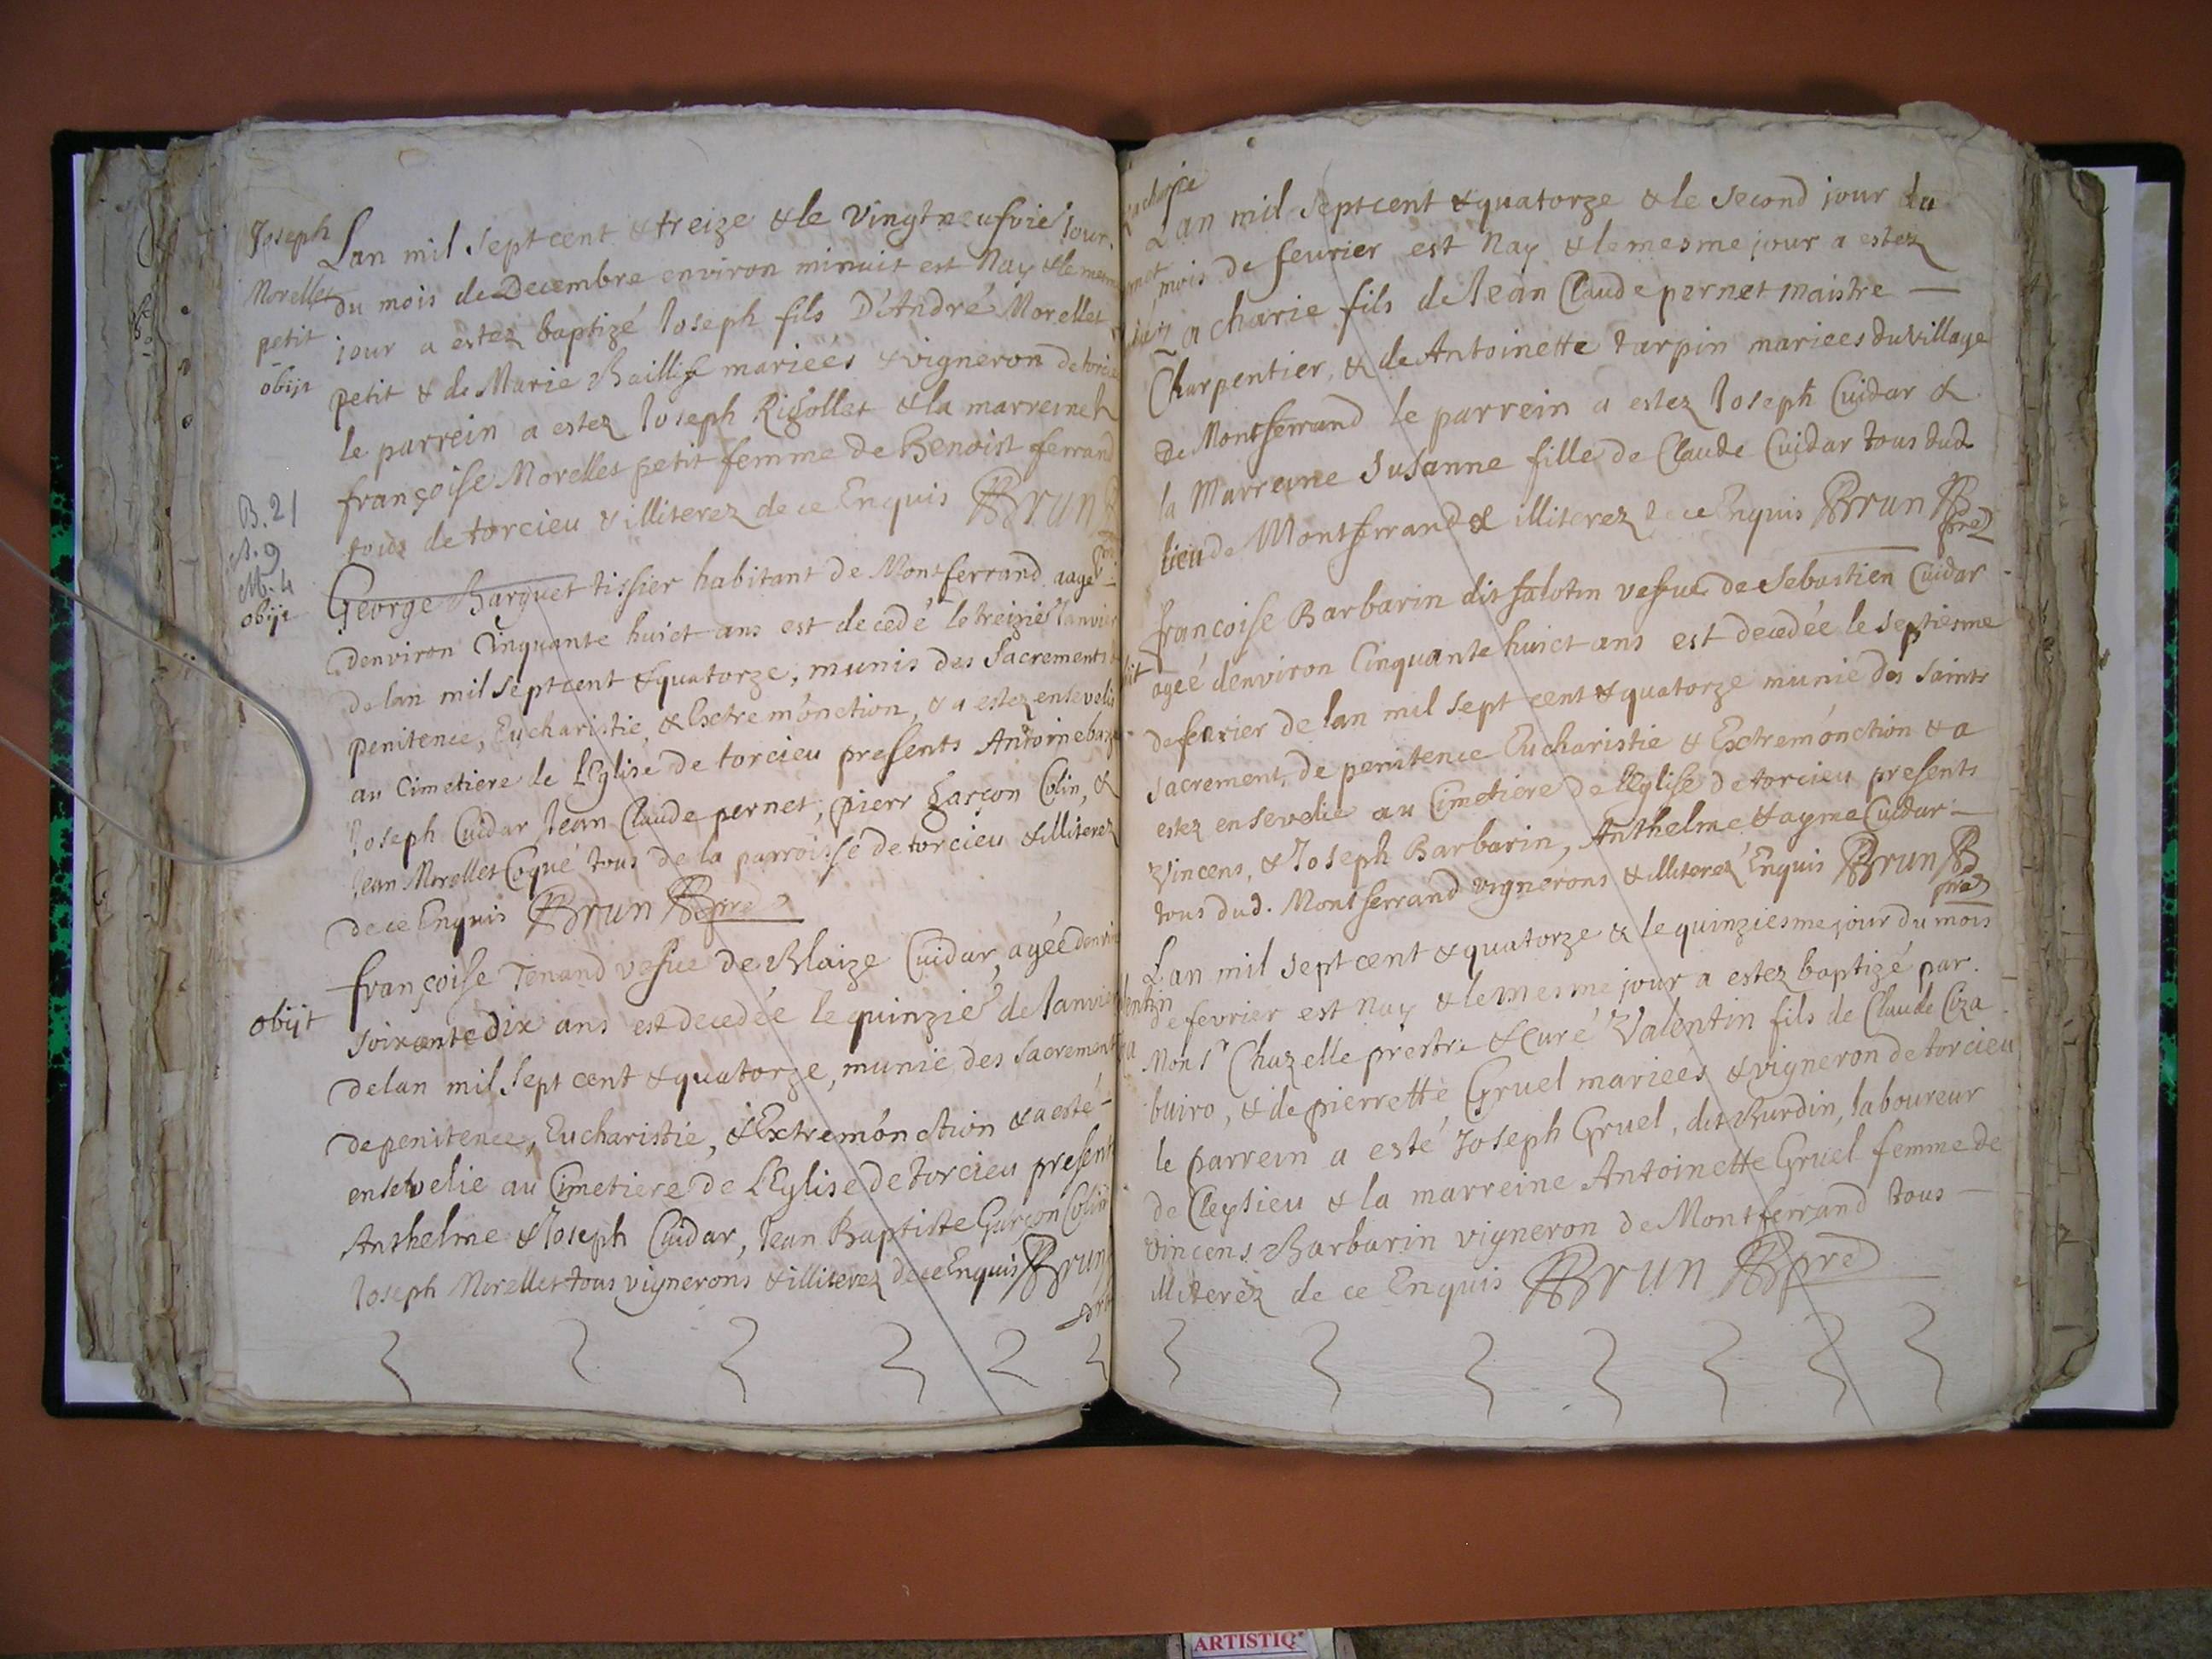 Joseph
Morellet
petit
obijt
Lan mil sept cent & treize & le vingt neufvie Jour
du mois de Decembre environ minuit est nay & le mem
jour a estez baptizé Joseph fils D'André Morellet
petit & de Marie Baillif mariées & vigneron de torcie
le parrein a estez Joseph Rigollet & la marreine
françoise Morellet petit femme de Benoist ferrand
tous de torcieu & illiterez de ce Enquis Brun
B. 21
S. 9
M. 4
obijt
George Barquet tissier habitant de Montferrand aagé
denviron Cinquante huict ans est decedé le treizie Janvier
de lan mil sept cent & quatorze, munis des Sacrements
penitence, Eucharistie, & Extremónction, & a estez enseveli
au Cimetiere de LEglise de torcieu presents Antoine
Joseph Cuidar Jean Claude pernet, pierr Garçon Colin, &
Jean Morellet Coqué tous de la parroisse de torcieu & illiterez
de ce Enquis Brun pre
obijt
françoise Tenand vefue de Blaize Cuidar, agée denvi
soixante dix ans est decedée le quinzie de Janvier
de lan mil sept cent & quatorze, munie des Sacrement
de penitence, Eucharistie, & Extremónction & a esté
ensevelie au Cimetiere de LEglise de torcieu present
Anthelme & Joseph Cuidar, Jean Baptiste Garçon Colin
Joseph Morellet tous vignerons & illiterez de ce Enquis Brun
Zacharie
Lan mil sept cent & quatorze & le second jour du
mois de feurier est Nay & le mesme jour a estez
acharie fils de Jean Claude pernet maistre
Charpentier, & de Antoinette tarpin mariees du village
de Montferrand le parrein a estez Joseph Cuidar &
la Marreine Susanne fille de Claude Cuidar tous dud
lieu de Montferrand & illiterez de ce Enquis Brun
pre
françoise Barbarin dit falotin vefue de Sebastien Cuidar
ageé denviron Cinquante huict ans est decedée le septiesme
de feurier de lan mil sept cent & quatorze munie des saints
sacrement, de penitence Eucharistie & Extremónction & a
estez ensevelie au Cimetiere de LEglise de torcieu presents
Vincens, & Joseph Barbarin, Anthelme & ayme Cuidar
tous dud. Montferrand vignerons & illiterez Enquis Brun
pre
Lan mil sept cent & quatorze & le quinziesme jour du mois
de fevrier est nay & le mesme jour a estez baptizé par
Monsr Chazelle prestre & curé Valentin fils de Claude Ciza
buiro, & de pierrette Gruel mariées & vigneron de torcieu
le parrein a esté Joseph Gruel, dit Burdin, laboureur
de Cleysieu & la marreine Antoinette Gruel femme de
Vincens Barbarin vigneron de Montferrand tous
illiterez de ce Enquis Brun pre
ARTISTIQ